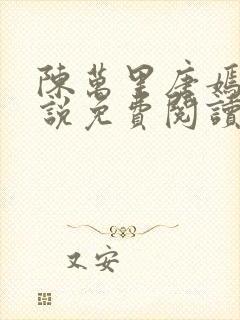 陳萬里唐嫣
說免費閱讀
又安